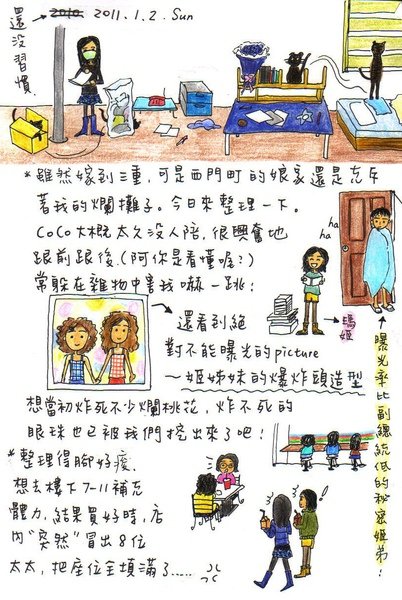 還沒習慣
2010. 2011.1.2. Sun
*雖然嫁到三重,可是西門町的娘家還是充斥
著我的爛攤子。今日來整理一下。
CoCo大概太久沒人陪,很興奮地
跟前跟後(阿你是看懂喔?)
常躲在雜物中害我嚇一跳!
ha
ha
ha
瑪姬
還看到絕
對不能曝光的picture
~姬姊妹的爆炸頭造型
想當初炸死不少爛桃花,炸不死的
眼珠也已被我們挖出來了吧!
曝光率比副總統低的秘密姬弟!
*整理得腳好痠,
想去樓下7-11補充
體力,結果買好時,店
內"突然"冒出8位
太太,把座位全填滿了.....